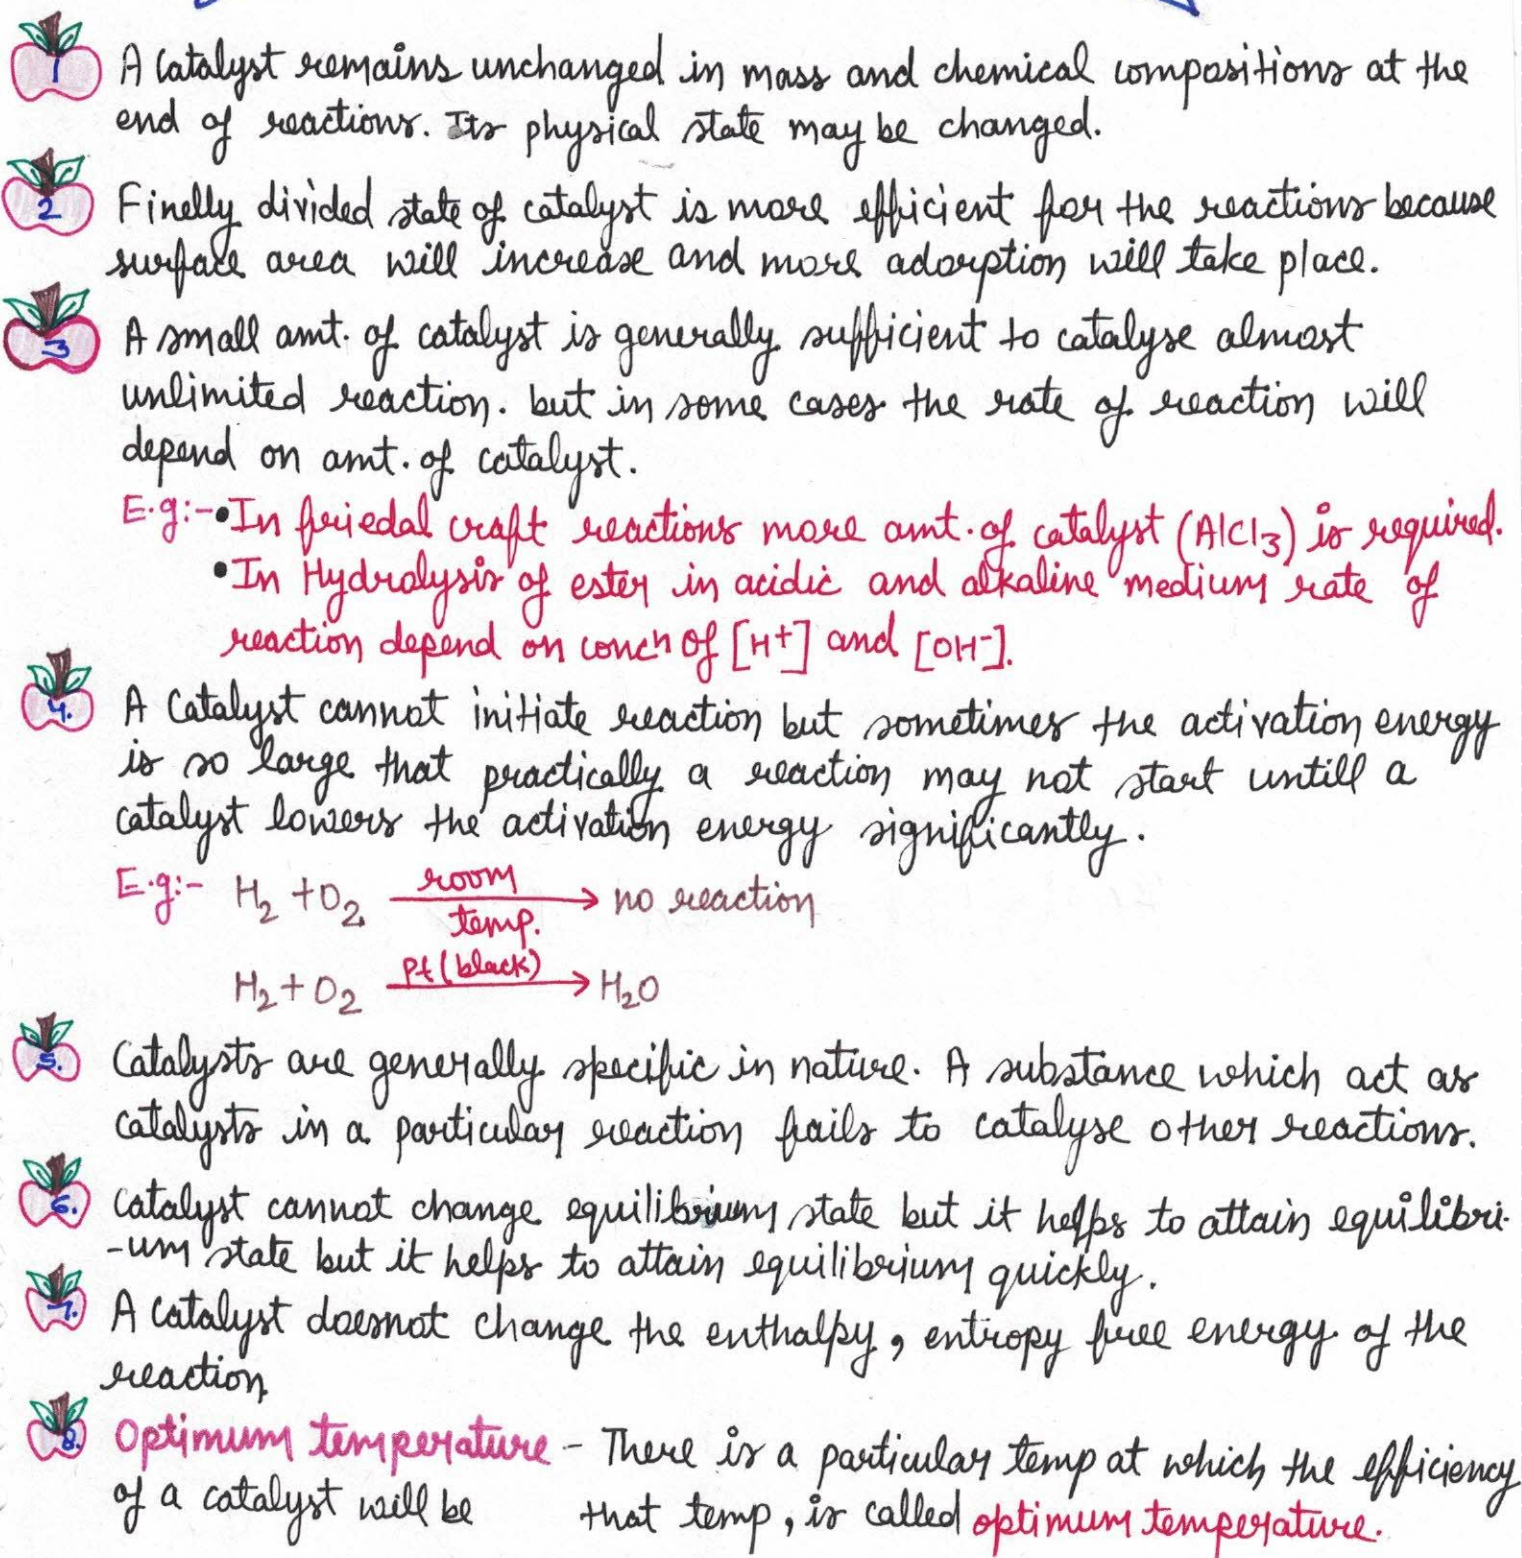 1 A Catalyst remains unchanged in mass and chemical compositions at the
end of reactions. Its physical state may be changed.
2 Finelly divided state of catalyst is more efficient for the reactions because
surface area will increase and more adorption will take place.
3 A small amt. of catalyst is generally sufficient to catalyse almost
unlimited reaction. but in some cases the rate of reaction will
depend on amt. of catalyst.
E.g:- • In friedal craft reactions more amt. of catalyst (AlCl3) is required.
• In Hydrolysis of ester in acidic and alkaline medium rate of
reaction depend on concn of [H+] and [OH-].
4. A Catalyst cannot initiate reaction but sometimes the activation energy
is so large that practically a reaction may not start untill a
catalyst lowers the activation energy significantly.
E.g:- H2 + O2 room temp. → no reaction
H2 + O2 Pt (black) → H2O
5. Catalysts are generally specific in nature. A substance which act as
catalysts in a particular reaction fails to catalyse other reactions.
6. Catalyst cannot change equilibrium state but it helps to attain equilibri-
-um state but it helps to attain equilibrium quickly.
7. A Catalyst doesnot change the enthalpy, entropy free energy of the
reaction
8. Optimum temperature - There is a particular temp at which the efficiency
of a catalyst will be that temp, is called optimum temperature.